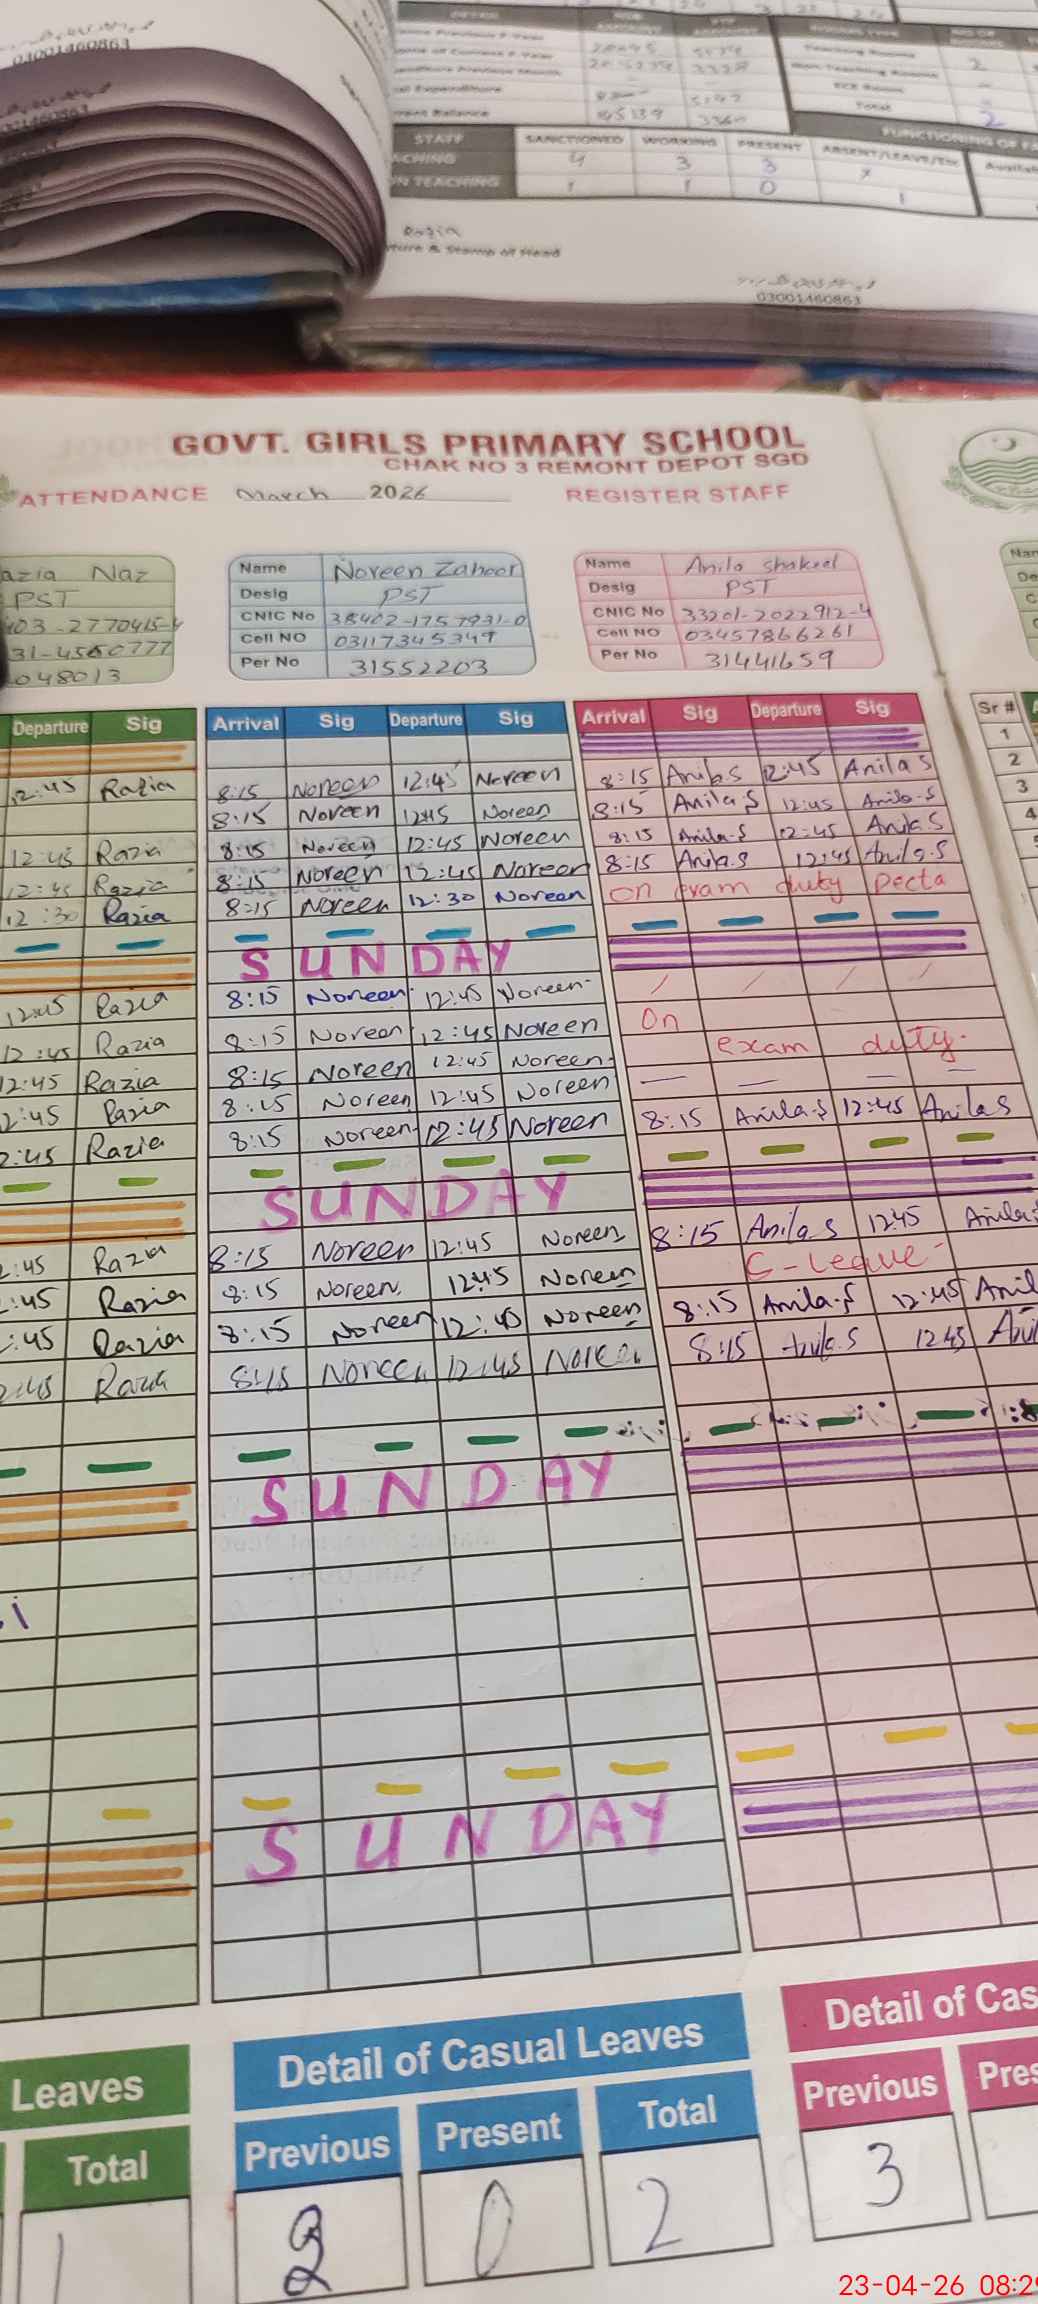 03001460863
STAFF SANCTIONED WORKING PRESENT ABSENT/LEAVE/Etc
TEACHING 4 3 3 x
TEACHING 1 1 0 1
Total 2
Razia
& Stamp of Head
03001460863
GOVT. GIRLS PRIMARY SCHOOL
CHAK NO 3 REMONT DEPOT SGD
ATTENDANCE March 2026 REGISTER STAFF
azia Naz
PST
403-2770415-4
31-4560777
048013
Name Noreen Zahoor
Desig PST
CNIC No 38402-1757931-0
Cell NO 03117345349
Per No 31552203
Name Anila shakeel
Desig PST
CNIC No 33201-2022912-4
Cell NO 03457866261
Per No 31441659
Departure Sig Arrival Sig Departure Sig Arrival Sig Departure Sig Sr #
1
12:45 Razia 8:15 Noreen 12:45 Noreen 8:15 Anila S 12:45 Anila S 2
8:15 Noreen 12:45 Noreen 8:15 Anila S 12:45 Anila-S 3
12:45 Razia 8:15 Noreen 12:45 Noreen 8:15 Anila-S 12:45 Anila S 4
12:45 Razia 8:15 Noreen 12:45 Noreen 8:15 Anila S 12:45 Anila-S
12:30 Razia 8:15 Noreen 12:30 Noreen On exam duty Pecta
SUNDAY
12:45 Razia 8:15 Noreen 12:45 Noreen
12:45 Razia 8:15 Noreen 12:45 Noreen On
12:45 Razia 8:15 Noreen 12:45 Noreen exam duty.
2:45 Razia 8:15 Noreen 12:45 Noreen
2:45 Razia 8:15 Noreen 12:45 Noreen 8:15 Anila-S 12:45 Anila S
SUNDAY
2:45 Razia 8:15 Noreen 12:45 Noreen 8:15 Anila S 12:45 Anila
:45 Razia 8:15 Noreen 12:45 Noreen C-Leave
:45 Razia 8:15 Noreen 12:45 Noreen 8:15 Anila-S 12:45 Anil
2:45 Razia 8:15 Noreen 12:45 Noreen 8:15 Anila.S 12:45 Ani
SUNDAY
SUNDAY
Leaves Detail of Casual Leaves Detail of Cas
Total Previous Present Total Previous Pres
1 2 0 2 3
23-04-26 08:29